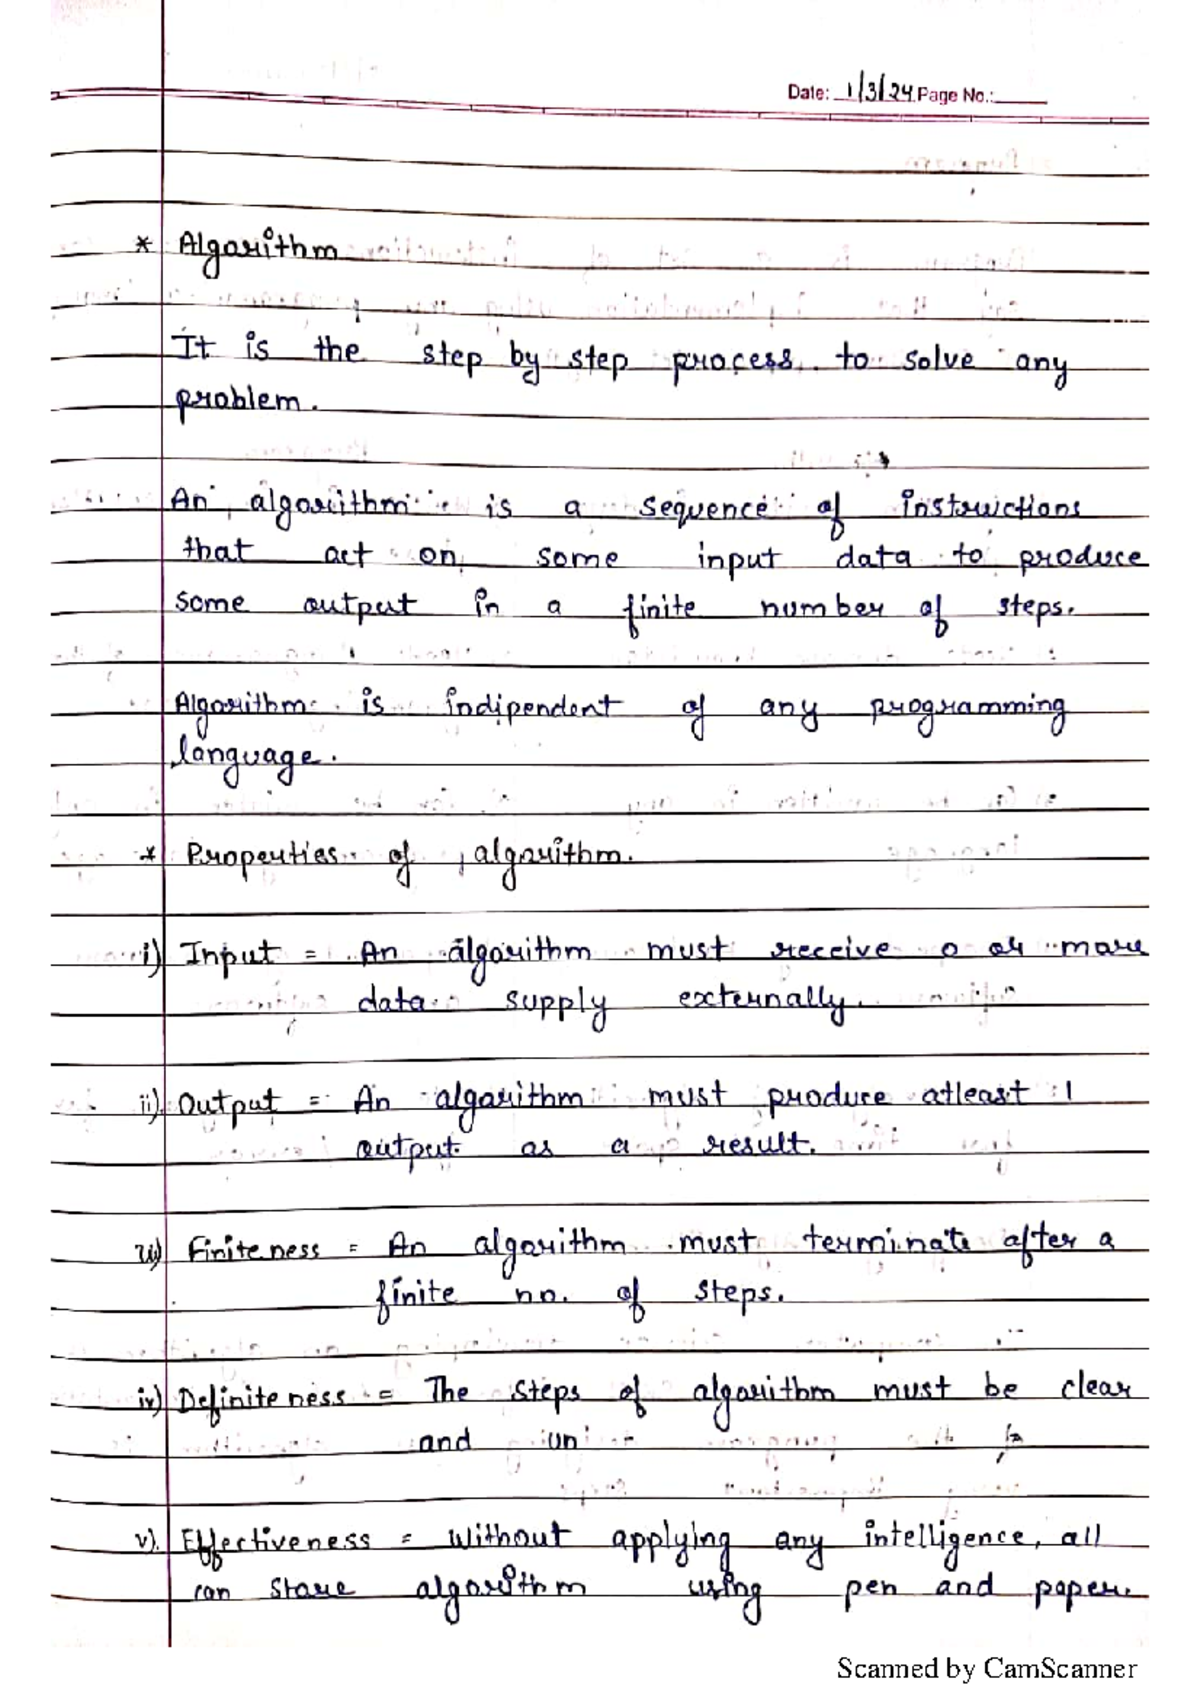 Date: 1/3/24 Page No.:
* Algorithm
It is the step by step process to solve any
problem.
An algorithm is a sequence of instructions
that act on some input data to produce
some output in a finite number of steps.
Algorithm is indipendent of any programming
language.
* Properties of algorithm.
i) Input = An algorithm must receive 0 or more
data supply externally.
ii) Output = An algorithm must produce atleast 1
output as a result.
iii) Finiteness = An algorithm must terminate after a
finite no. of steps.
iv) Definiteness = The steps of algorithm must be clear
and un
v). Effectiveness = Without applying any intelligence, all
can stare algorithm using pen and paper.
Scanned by CamScanner